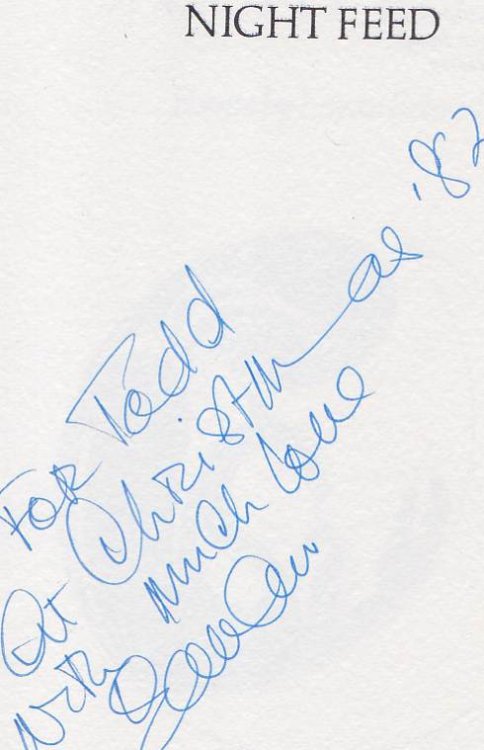 NIGHT FEED
For Todd
At Christmas '82
with much love
Eavan